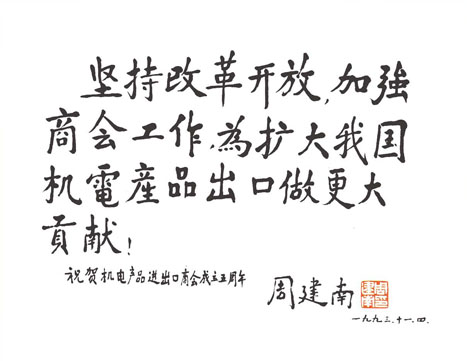 坚持改革开放,加強
商会工作,為扩大我国
机電産品出口做更大
貢献!
祝贺机电产品进出口商会成立五周年
周建南
周建南
一九九三.十一.四.